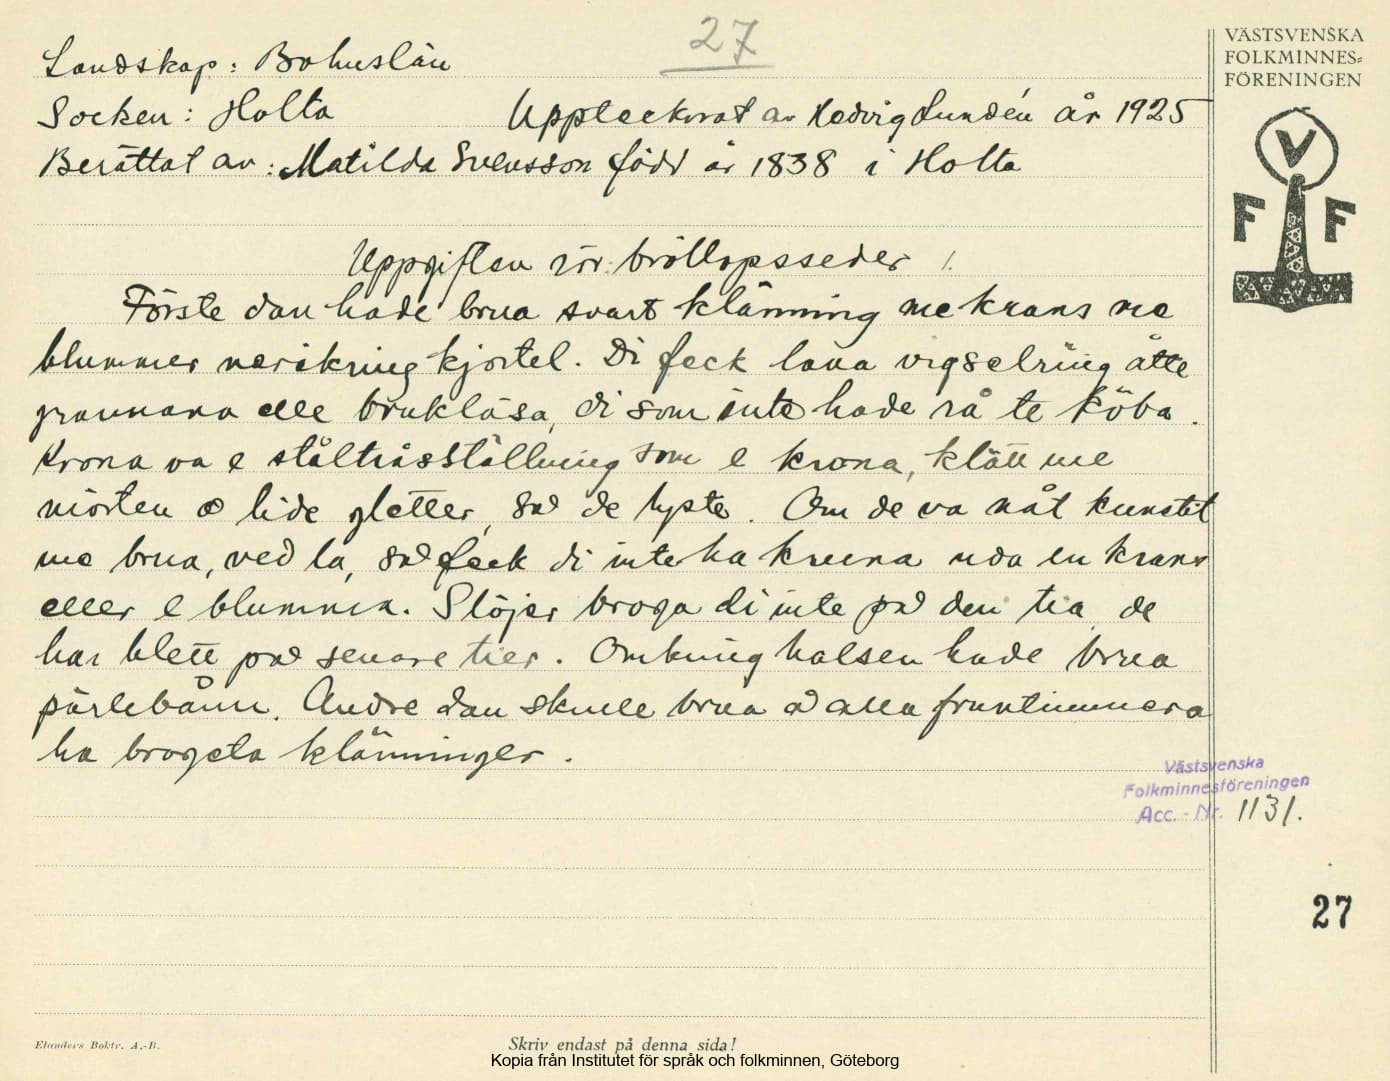 27
Landskap: Bohuslän
Socken: Holta Upptecknat av Hedvig Lundén år 1925
Berättat av: Matilda Svensson född år 1838 i Holta
Uppgiften rör: bröllopsseder 1.
Förste dan hade brua svart klänning me krans me
blummer næríkring kjortel. Di feck låna vigselring åtte
grannana elle brukläsa, di som inte hade rå te köba.
Krona va e ståltrådsställning som e krona, klätt me
mörten o lide gletter, så de lyste. Om de va nåt kunstit
me brua, ved la, så feck di inte ha kruna uda en krans
eller e blumma. Slöjer broga di inte på den tia de
har blett på senare tier. Omkring halsen hade brua
pärlebånn. Andre dan skulle brua å alla fruntimmera
ha brogeta klänninger.
VÄSTSVENSKA
FOLKMINNES=
FÖRENINGEN
V
F F
Västsvenska
Folkminnesföreningen
Acc. - Nr. 1131.
27
Elanders Boktr. A.-B.
Skriv endast på denna sida!
Kopia från Institutet för språk och folkminnen, Göteborg